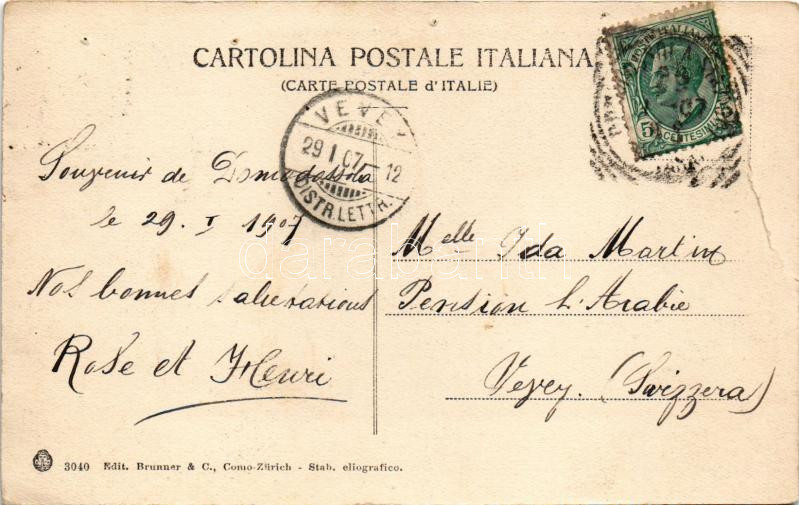 CARTOLINA POSTALE ITALIANA
(CARTE POSTALE d'ITALIE)
POSTE ITALIANE
5 CENTESIMI
VEVEY
29 I 07 12
DISTR. LETTR.
Souvenir de Domodossola
le 29. I 1907
Nos bonnes salutations
Rose et Henri
Melle Ida Martin
Pension l'Arabie
Vevey. (Svizzera)
darabanth
3040 Edit. Brunner & C., Como-Zürich - Stab. eliografico.